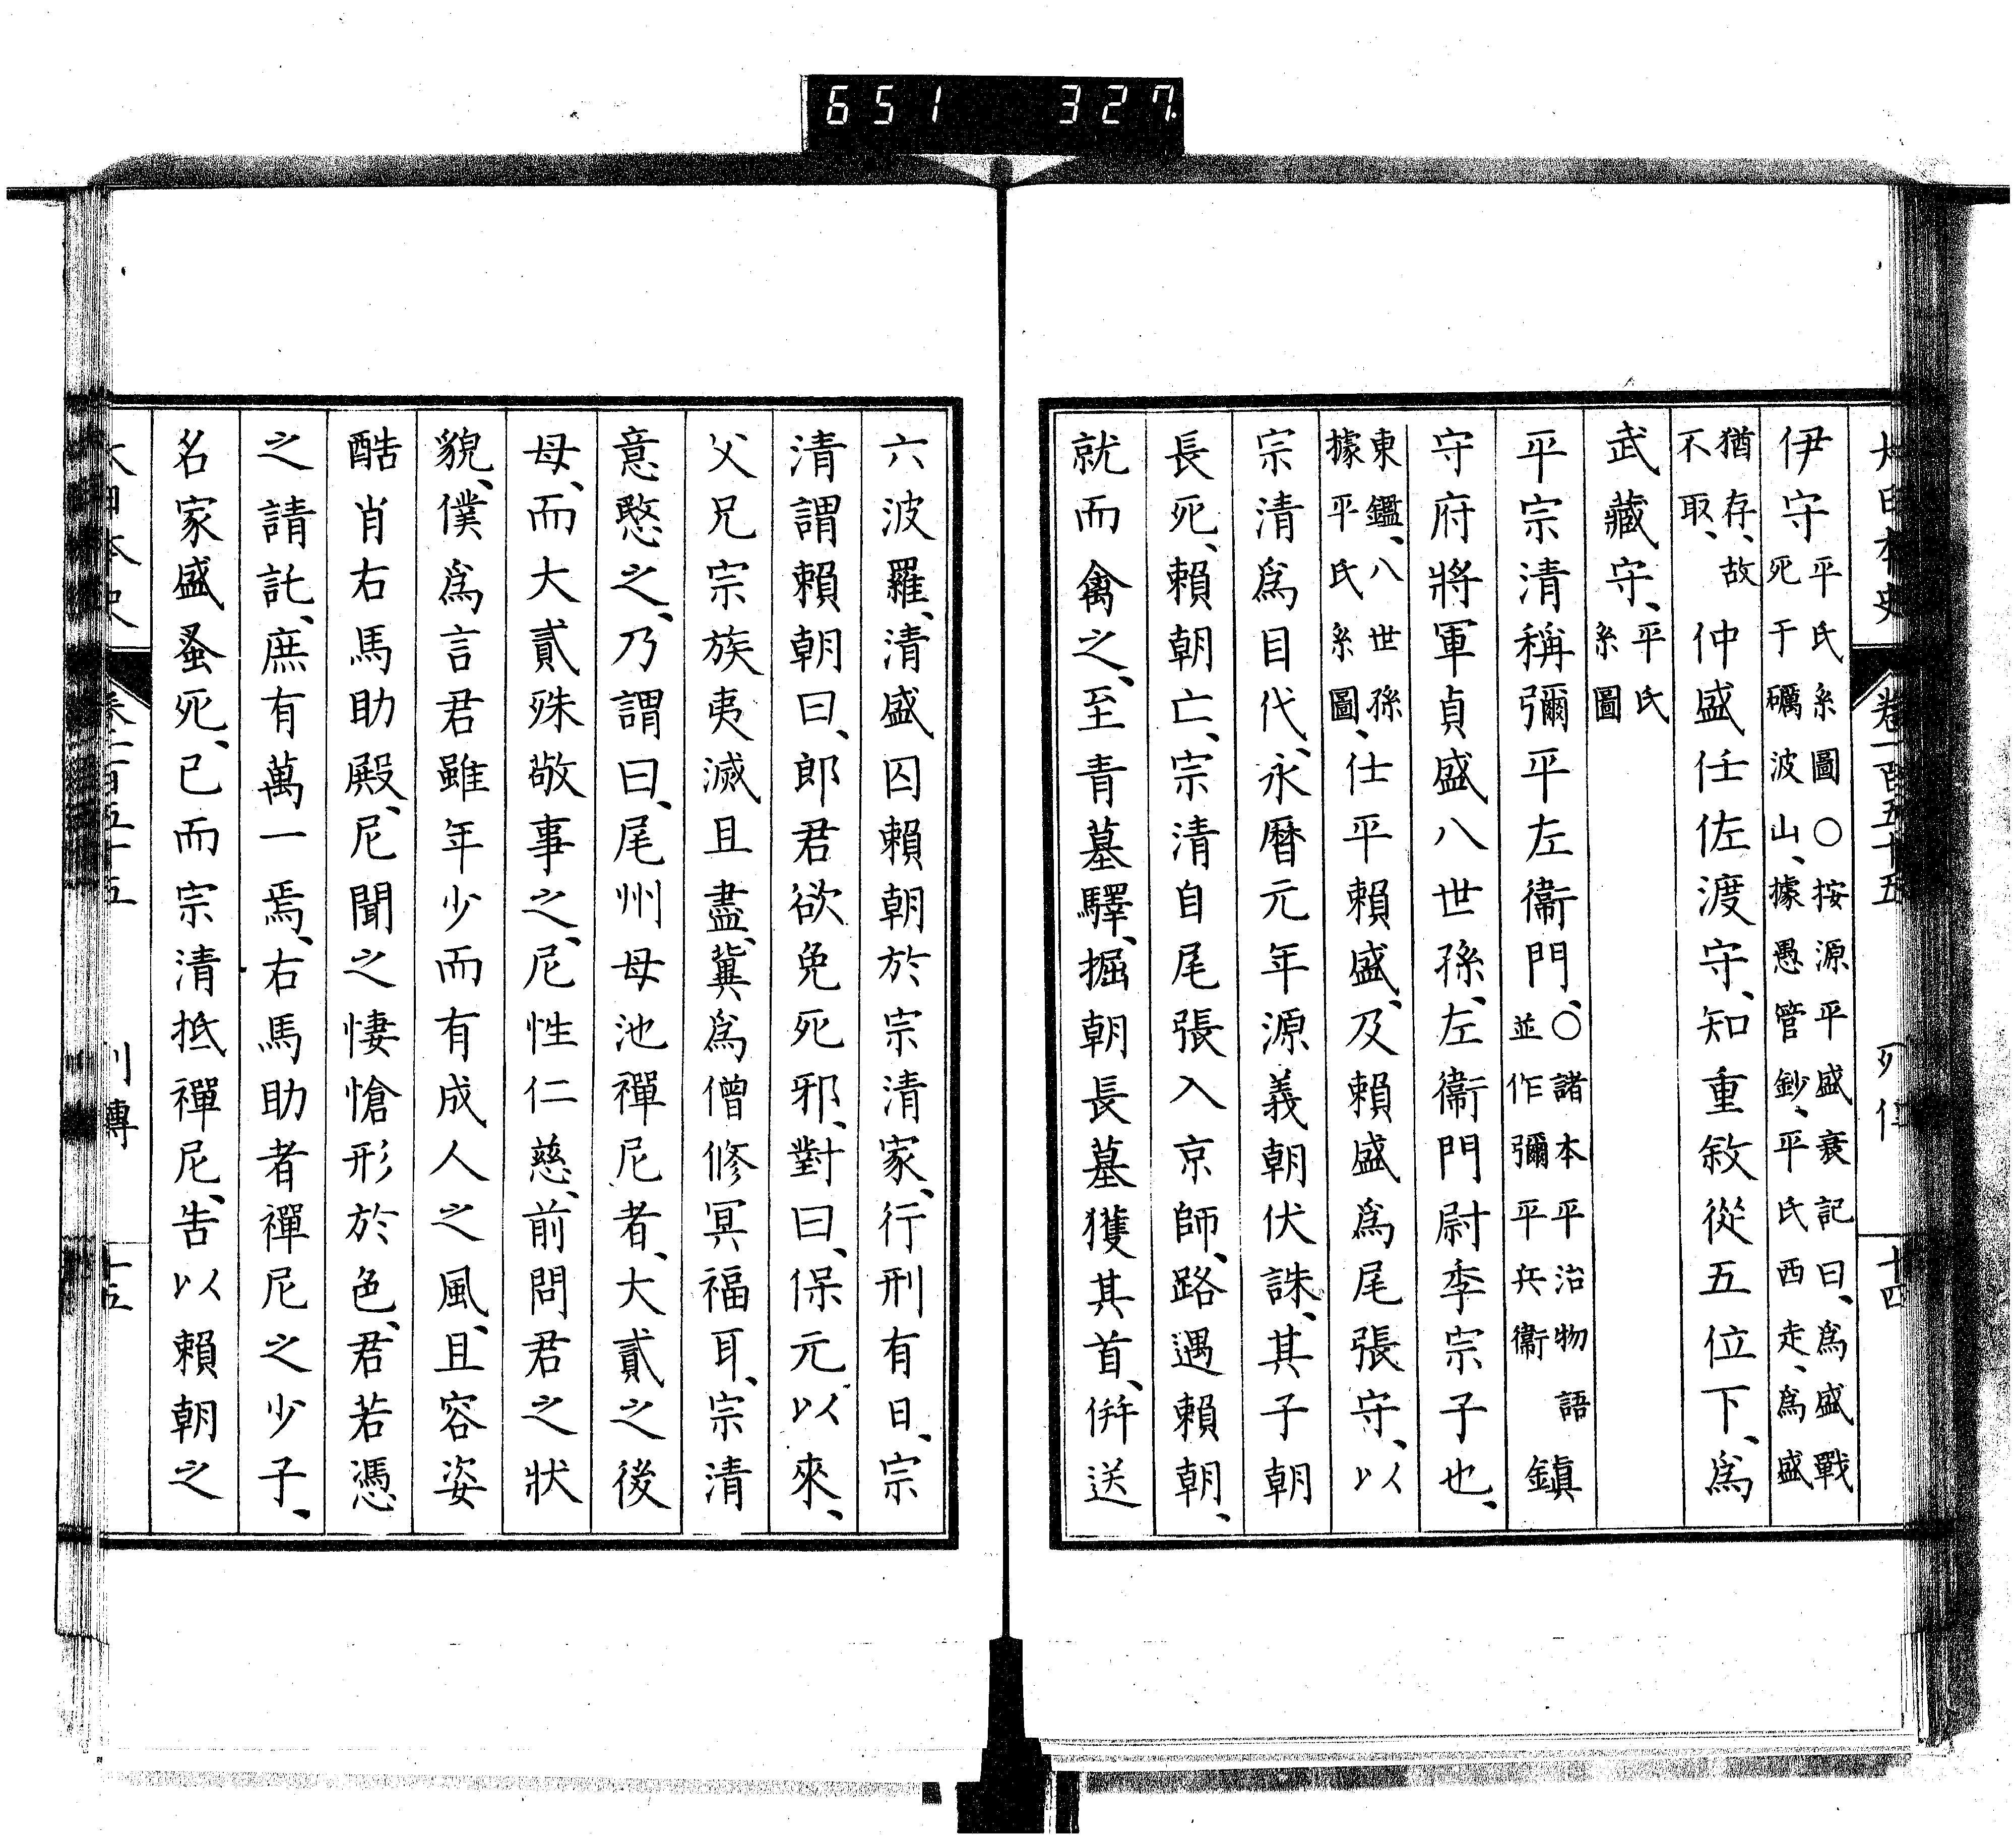 651 327
大日本史 卷一百五十五 列傳 十四
伊守平氏系圖〇按源平盛衰記曰、爲盛戰死于礪波山、據愚管鈔、平氏西走、爲盛
猶存、故不取、仲盛任佐渡守、知重敘從五位下、爲
武藏守、平氏系圖
平宗清稱彌平左衞門、〇諸本平治物語並作彌平兵衞鎭
守府將軍貞盛八世孫、左衞門尉季宗子也、
東鑑、八世孫據平氏系圖、仕平賴盛、及賴盛爲尾張守、以
宗清爲目代、永曆元年源義朝伏誅、其子朝
長死、賴朝亡、宗清自尾張入京師、路遇賴朝、
就而禽之、至青墓驛、掘朝長墓獲其首、倂送
六波羅、清盛囚賴朝於宗清家、行刑有日、宗
清謂賴朝曰、郎君欲免死邪、對曰、保元以來、
父兄宗族夷滅且盡、冀爲僧修冥福耳、宗清
意憫之、乃謂曰、尾州母池禪尼者、大貳之後
母、而大貳殊敬事之、尼性仁慈、前問君之狀
貌、僕爲言君雖年少而有成人之風、且容姿
酷肖右馬助殿、尼聞之悽愴形於色、君若憑
之請託、庶有萬一焉、右馬助者禪尼之少子、
名家盛蚤死、已而宗清抵禪尼、告以賴朝之
大日本史 卷一百五十五 列傳 十五